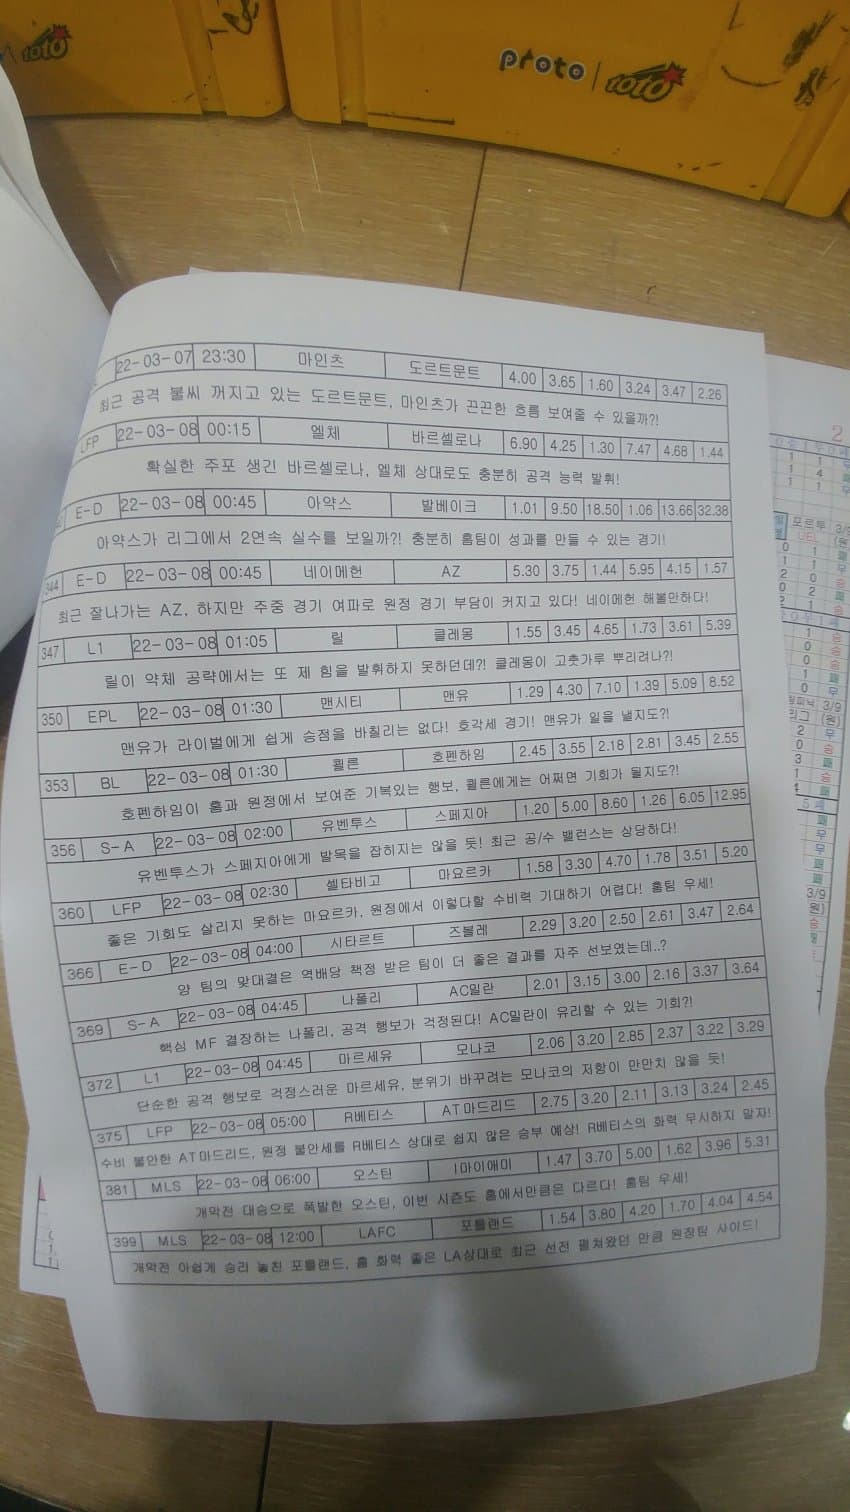 toto
proto | toto
22-03-07 23:30 마인츠 도르트문트 4.00 3.65 1.60 3.24 3.47 2.26
최근 공격 불씨 꺼지고 있는 도르트문트, 마인츠가 끈끈한 흐름 보여줄 수 있을까?!
LFP 22-03-08 00:15 엘체 바르셀로나 6.90 4.25 1.30 7.47 4.68 1.44
확실한 주포 생긴 바르셀로나, 엘체 상대로도 충분히 공격 능력 발휘!
E-D 22-03-08 00:45 아약스 발베이크 1.01 9.50 18.50 1.06 13.66 32.38
아약스가 리그에서 2연속 실수를 보일까?! 충분히 홈팀이 성과를 만들 수 있는 경기!
344 E-D 22-03-08 00:45 네이메헌 AZ 5.30 3.75 1.44 5.95 4.15 1.57
최근 잘나가는 AZ, 하지만 주중 경기 여파로 원정 경기 부담이 커지고 있다! 네이메헌 해볼만하다!
347 L1 22-03-08 01:05 릴 클레몽 1.55 3.45 4.65 1.73 3.61 5.39
릴이 약체 공략에서는 또 제 힘을 발휘하지 못하던데?! 클레몽이 고춧가루 뿌리려나?!
350 EPL 22-03-08 01:30 맨시티 맨유 1.29 4.30 7.10 1.39 5.09 8.52
맨유가 라이벌에게 쉽게 승점을 바칠리는 없다! 호각세 경기! 맨유가 일을 낼지도?!
353 BL 22-03-08 01:30 쾰른 호펜하임 2.45 3.55 2.18 2.81 3.45 2.55
호펜하임이 홈과 원정에서 보여준 기복있는 행보, 쾰른에게는 어쩌면 기회가 될지도?!
356 S-A 22-03-08 02:00 유벤투스 스페지아 1.20 5.00 8.60 1.26 6.05 12.95
유벤투스가 스페지아에게 발목을 잡히지는 않을 듯! 최근 공/수 밸런스는 상당하다!
360 LFP 22-03-08 02:30 셀타비고 마요르카 1.58 3.30 4.70 1.78 3.51 5.20
좋은 기회도 살리지 못하는 마요르카, 원정에서 이렇다할 수비력 기대하기 어렵다! 홈팀 우세!
366 E-D 22-03-08 04:00 시타르트 즈볼레 2.29 3.20 2.50 2.61 3.47 2.64
양 팀의 맞대결은 역배당 책정 받은 팀이 더 좋은 결과를 자주 선보였는데..?
369 S-A 22-03-08 04:45 나폴리 AC밀란 2.01 3.15 3.00 2.16 3.37 3.64
핵심 MF 결장하는 나폴리, 공격 행보가 걱정된다! AC밀란이 유리할 수 있는 기회?!
372 L1 22-03-08 04:45 마르세유 모나코 2.06 3.20 2.85 2.37 3.22 3.29
단순한 공격 행보로 걱정스러운 마르세유, 분위기 바꾸려는 모나코의 저항이 만만치 않을 듯!
375 LFP 22-03-08 05:00 R베티스 AT마드리드 2.75 3.20 2.11 3.13 3.24 2.45
수비 불안한 AT마드리드, 원정 불안세를 R베티스 상대로 쉽지 않은 승부 예상! R베티스의 화력 무시하지 말자!
381 MLS 22-03-08 06:00 오스틴 I마이애미 1.47 3.70 5.00 1.62 3.96 5.31
개막전 대승으로 폭발한 오스틴, 이번 시즌도 홈에서만큼은 다르다! 홈팀 우세!
399 MLS 22-03-08 12:00 LAFC 포틀랜드 1.54 3.80 4.20 1.70 4.04 4.54
개막전 아쉽게 승리 놓친 포틀랜드, 홈 화력 좋은 LA상대로 최근 선전 펼쳐왔던 만큼 원정팀 사이드!